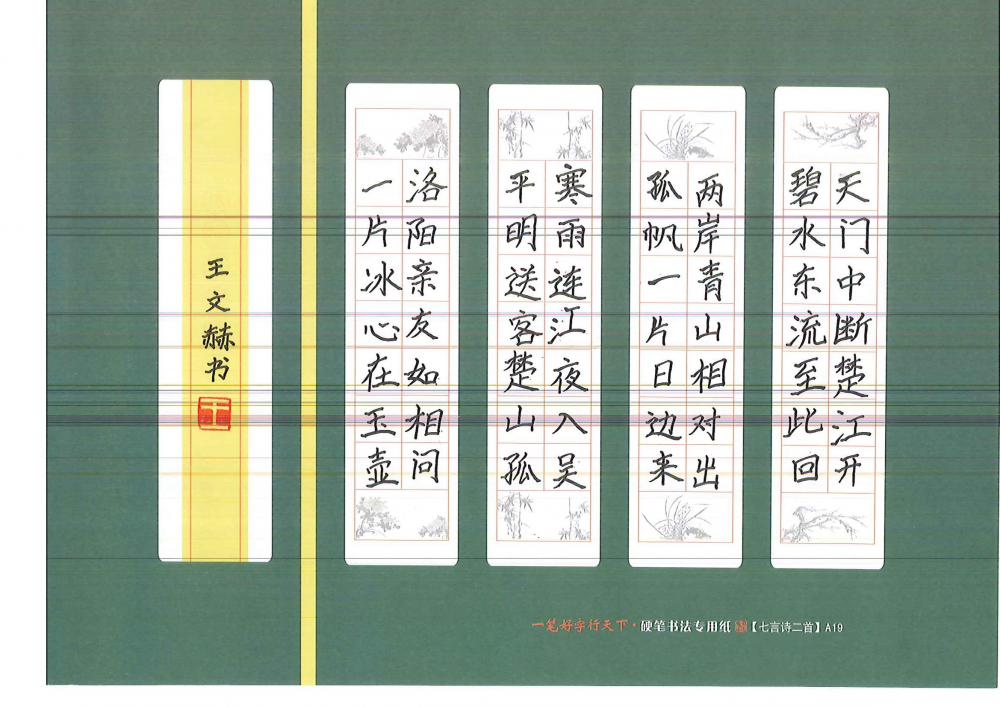 天门中断楚江开
碧水东流至此回
两岸青山相对出
孤帆一片日边来
寒雨连江夜入吴
平明送客楚山孤
洛阳亲友如相问
一片冰心在玉壶
王文赫书
一笔好字行天下·硬笔书法专用纸【七言诗二首】A19